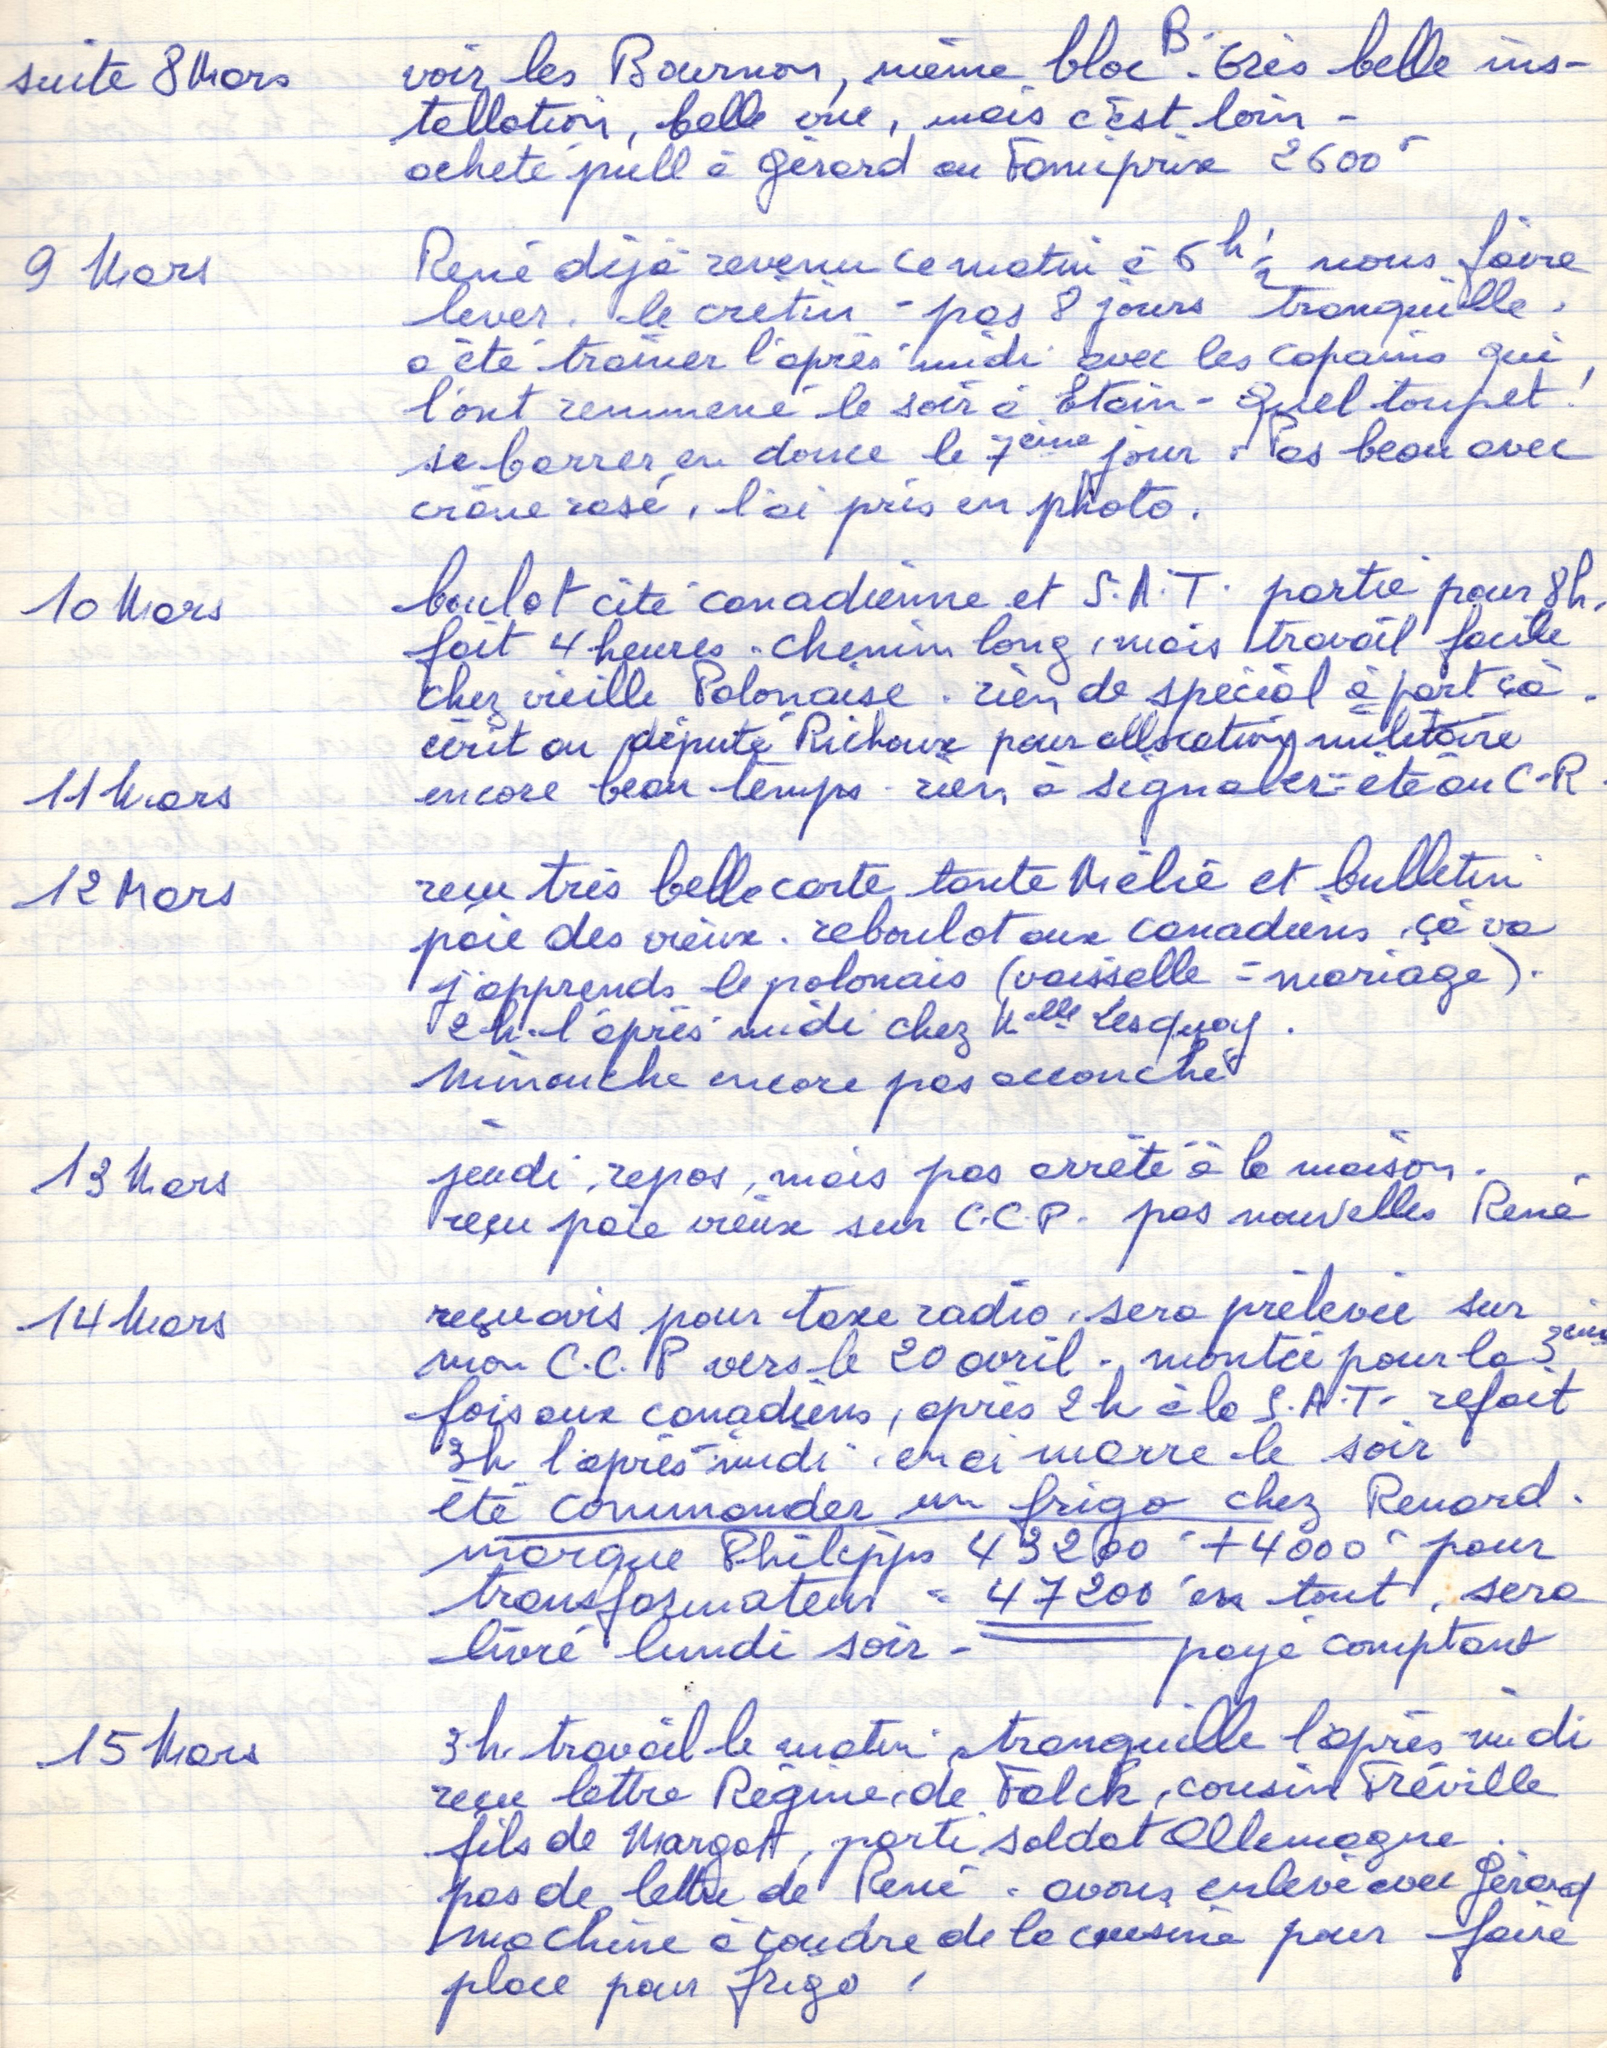 suite 8 Mars voir les Bournon, même bloc B. très belle ins-
tallation, belle vue, mais c'est loin -
acheté pull à Gérard au Familprix 2600
9 Mars René déjà revenu ce matin à 5 h ½ nous faire
lever. le crétin - pas 8 jours tranquille.
a été traîner l'après midi avec les copains qui
l'ont remmené le soir à Etain - Quel toupet!
se barrer en douce le 7ème jour. Pas beau avec
crâne rasé, l'ai pris en photo.
10 Mars boulot cité canadienne et S.A.T. partie pour 8h,
fait 4 heures. chemin long, mais travail facile
chez vieille Polonaise. rien de spécial à part çà.
écrit au député Richoux pour allocation militaire
11 Mars encore beau temps - rien à signaler = été au C-R.
12 Mars reçu très belle carte tante Mélie et bulletin
paie des vieux. reboulot aux canadiens, çà va
j'apprends le polonais (vaisselle = mariage).
2 h. l'après midi chez Melle Lesquoy.
Minouche encore pas accouché
13 Mars jeudi, repos, mais pas arrêté à la maison.
reçu paie vieux sur C.C.P. pas nouvelles René
14 Mars reçu avis pour taxe radio, sera prélevée sur
mon C.C.P vers le 20 avril. montée pour la 3ème
fois aux canadiens, après 2h à la S.A.T. refait
3h l'après midi. en ai marre le soir
été commander un frigo chez Renard.
marque Philipps 43200 + 4000 pour
transformateur = 47200 en tout, sera
livré lundi soir - payé comptant
15 Mars 3h. travail le matin, tranquille l'après midi
reçu lettre Régine, de Falck, cousin Tréville
fils de Margot, parti soldat Allemagne.
pas de lettre de René. avons enlevé avec Gérard
machine à coudre de la cuisine pour faire
place pour frigo.